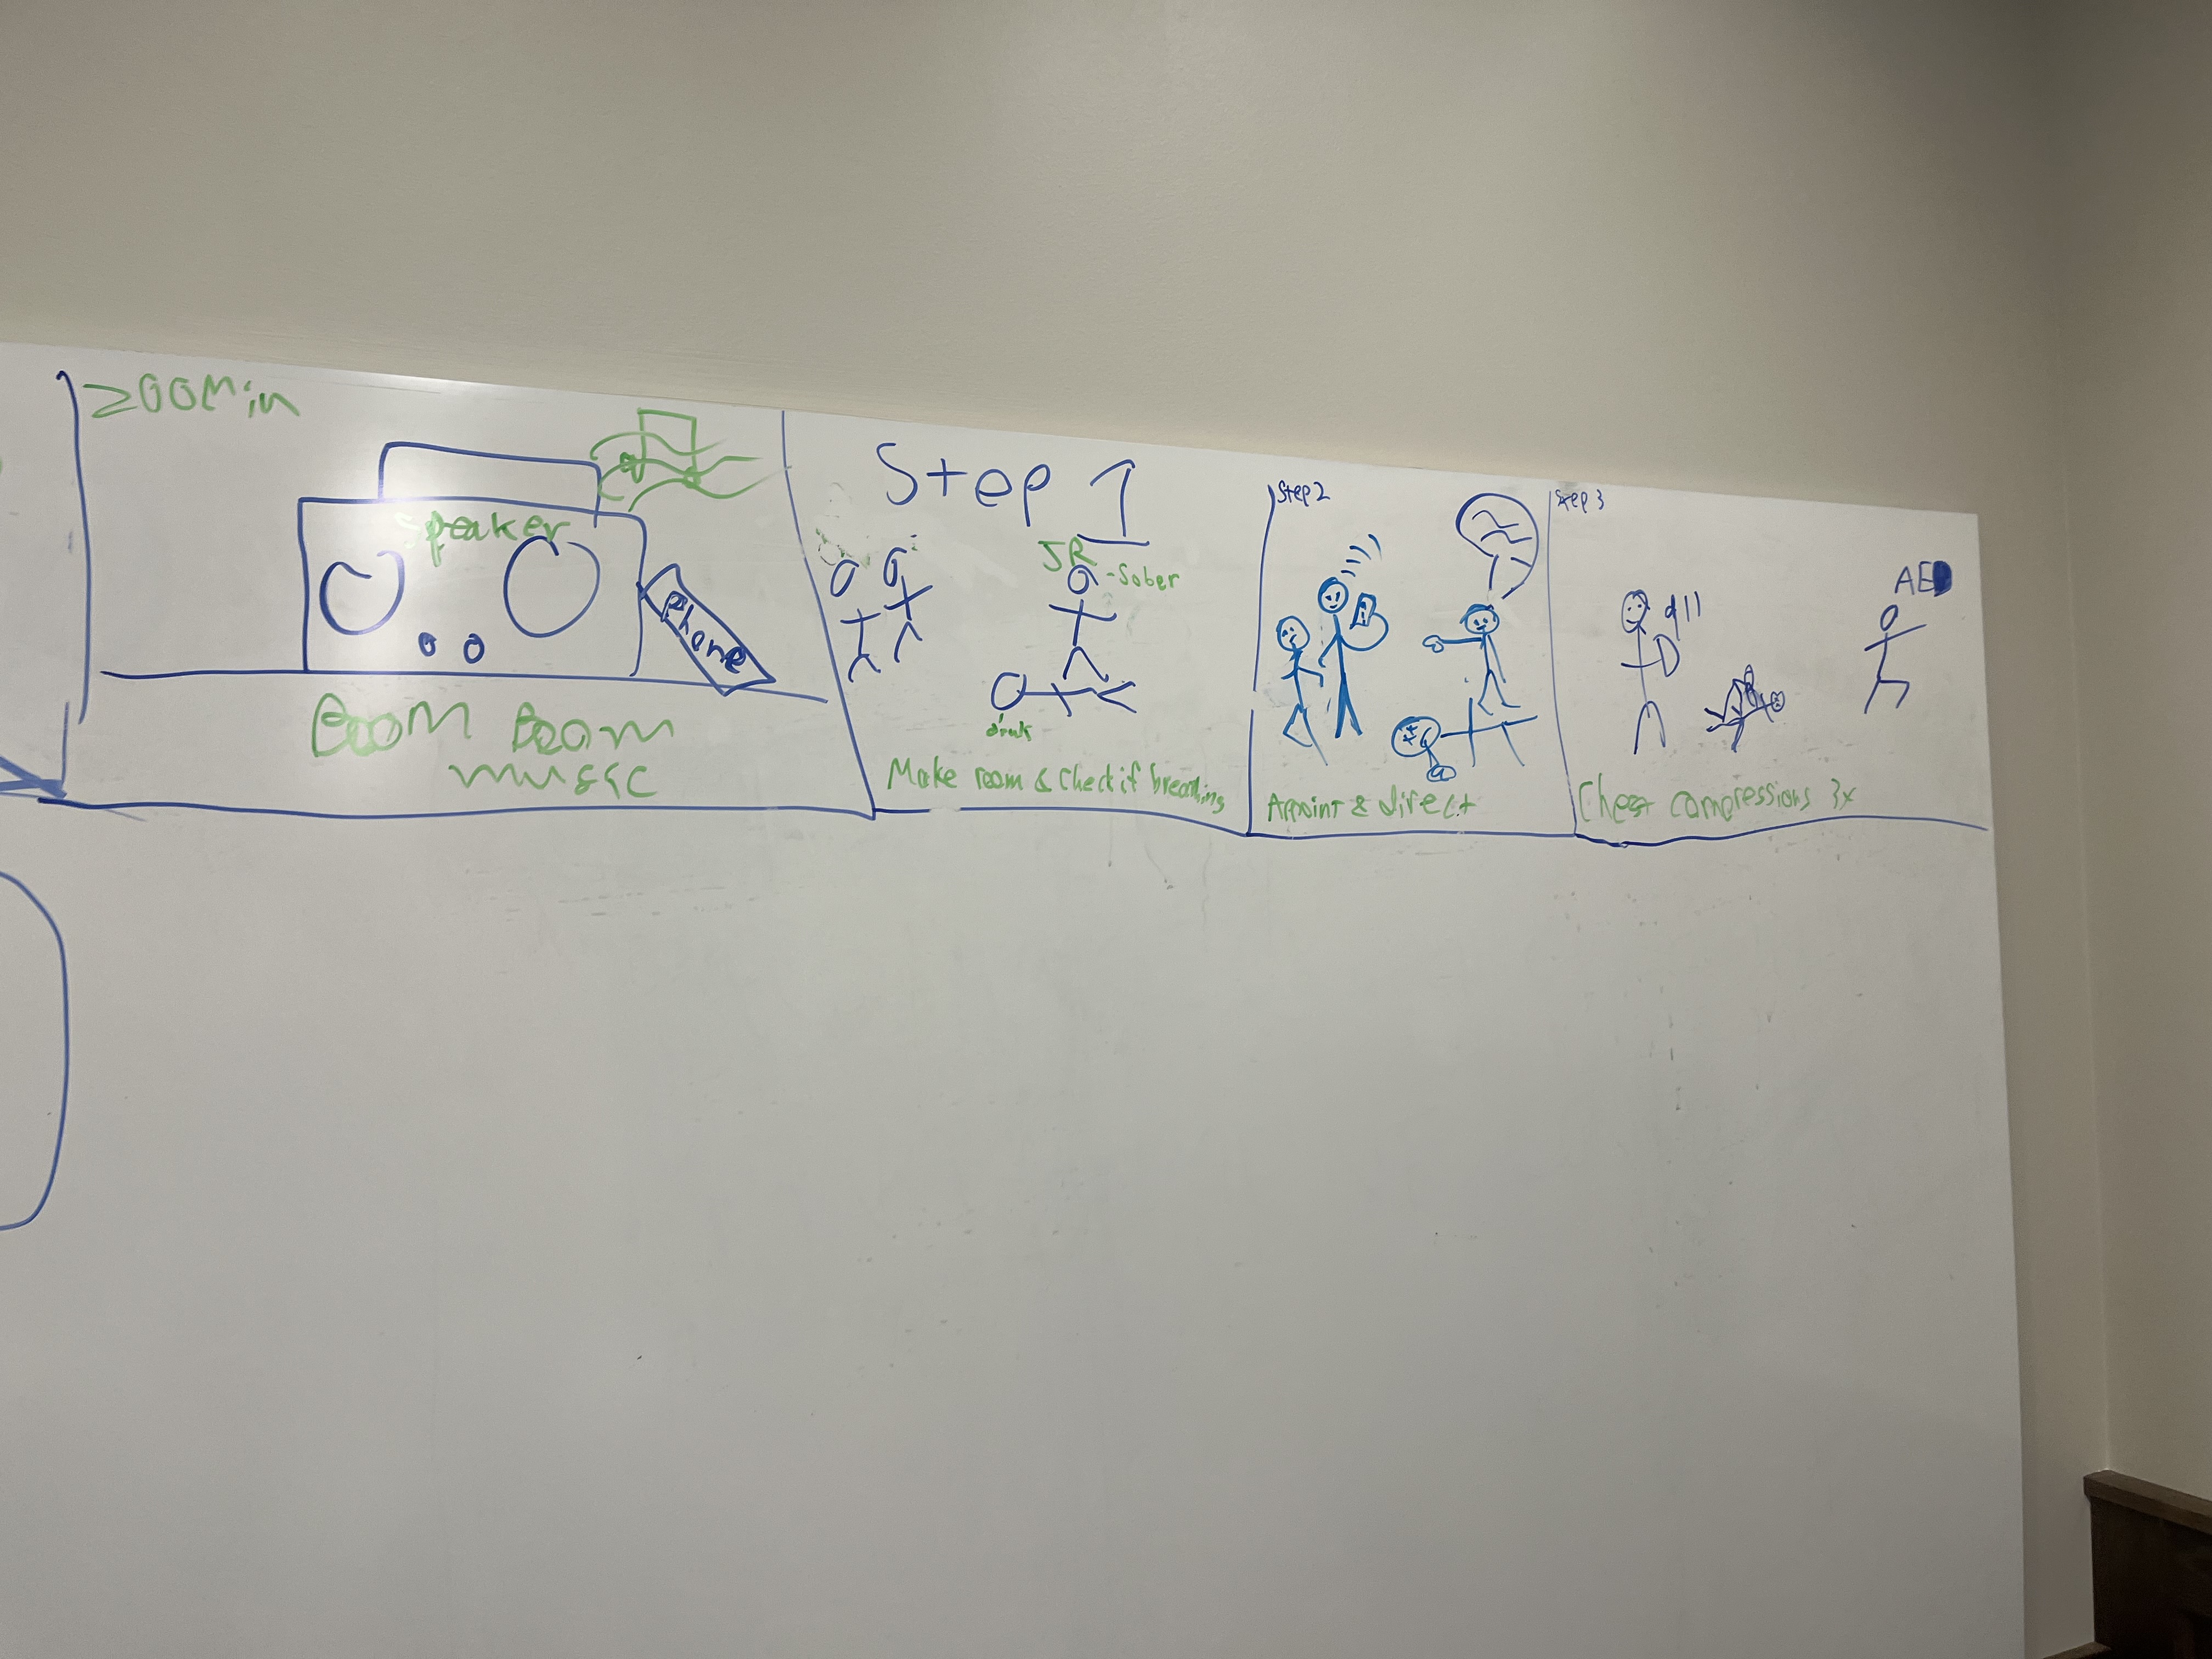 200Min
Speaker
Phone
BooM Boom
music
Step 1
JR
-Sober
drunk
Make room & Check if breathing
Step 2
Appoint & direct
Step 3
911
AED
Chest compressions 3x